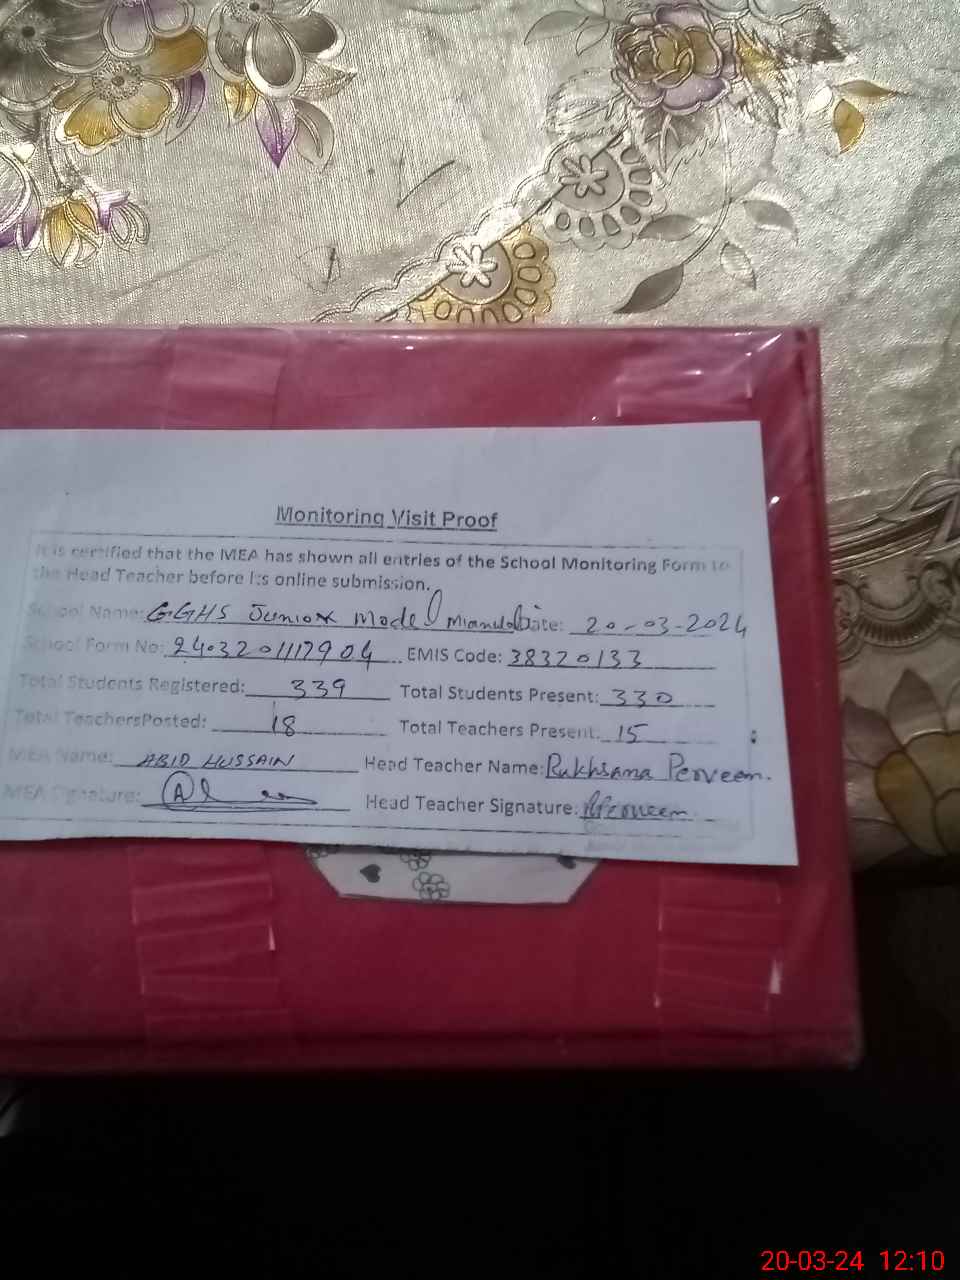 Monitoring Visit Proof
It is certified that the MEA has shown all entries of the School Monitoring Form to
the Head Teacher before its online submission.
School Name: GGHS Junior Model Date: 20-03-2024
School Form No: 2403201117904 EMIS Code: 38320133
Total Students Registered: 339 Total Students Present: 330
Total TeachersPosted: 18 Total Teachers Present: 15
MEA Name: ABID HUSSAIN Head Teacher Name: Rukhsana Perveen.
MEA Signature: Head Teacher Signature: RPerveen.
20-03-24 12:10